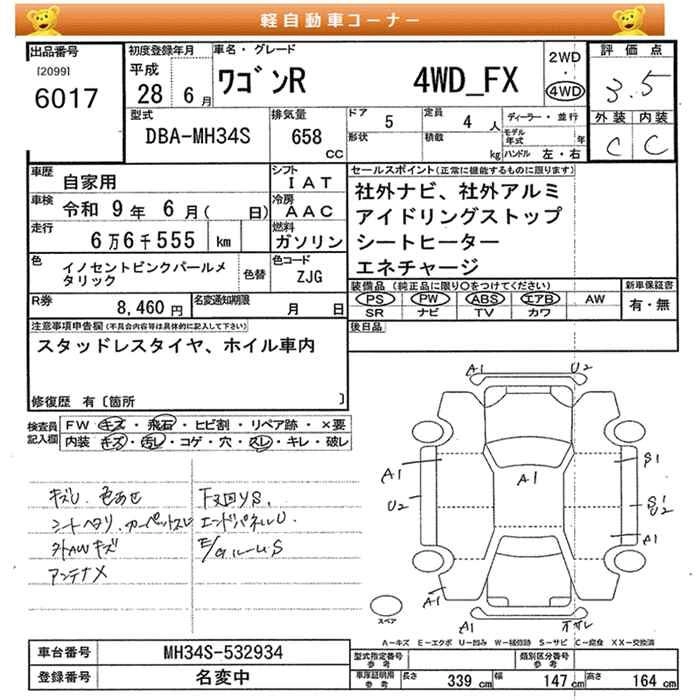 軽自動車コーナー
出品番号
[2099]
6017
初度登録年月
平成
28 6月
車名・グレード
ワゴンR 4WD_FX
2WD
・
4WD
評価点
3.5
外装 内装
C C
型式
DBA-MH34S
排気量
658
CC
ドア 5
形状
定員 4 人
積載 kg
ディーラー・並行
モデル年式 年
ハンドル 左・右
車歴
自家用
シフト
IAT
車検 令和 9年 6月( 日)
冷房
AAC
走行
6万6千555 km
燃料
ガソリン
色
イノセントピンクパールメ
タリック
色替
色コード
ZJG
R券
8,460円
名変通知期限
月 日
セールスポイント(正常に機能するものに限ります)
社外ナビ、社外アルミ
アイドリングストップ
シートヒーター
エネチャージ
装備品 (純正品に限り○をつけてください)
PS PW ABS エアB AW
SR ナビ TV カワ
新車保証書
有・無
後日品
注意事項申告欄(不具合内容等は具体的に記入して下さい)
スタッドレスタイヤ、ホイル車内
修復歴 有〔箇所 〕
検査員
記入欄
FW キズ・飛石・ヒビ割・リペア跡・×要
内装 キズ・汚レ・コゲ・穴・スレ・キレ・破レ
キズU.色あせ
シートヘタリ.カーペットスレ
外AWキズ
アンテナX
下回りS.
エンドパネルU.
A1 U2
A1 A1 S1
U2 S1
U2
A1
A1 A1
スペア
A-キズ E-エクボ U-凹み W-補修跡 S-サビ C-腐食 XX-交換済
車台番号 MH34S-532934
登録番号 名変中
型式指定番号
参考
類別区分番号
参考
車庫証明用
参考
長さ 339 cm 幅 147 cm 高さ 164 cm